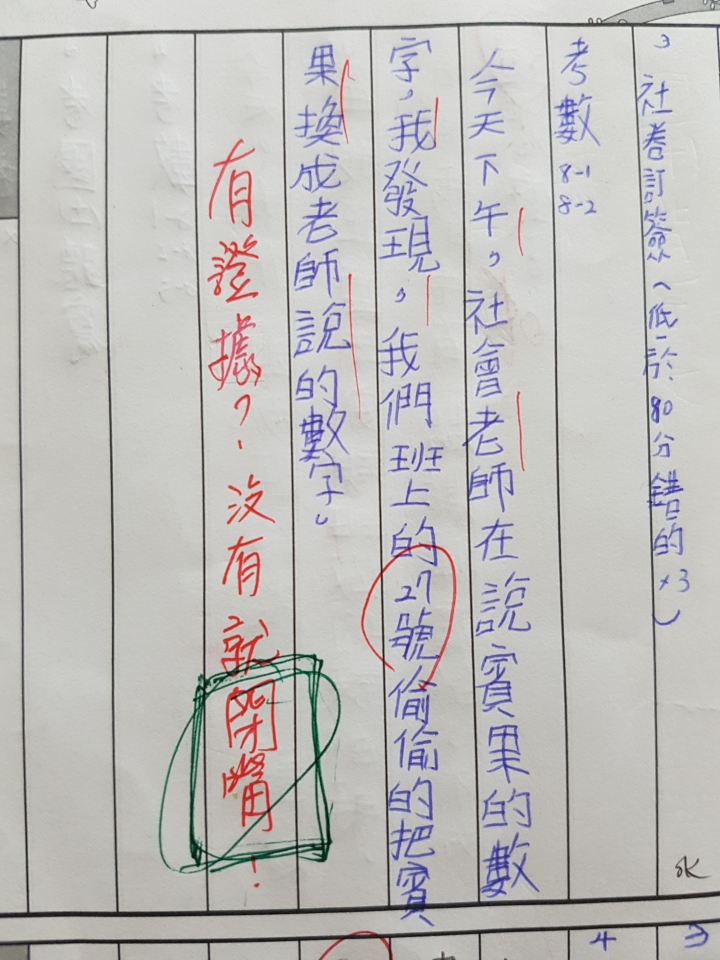 3 社卷訂簽(低於80分錯的×3)
考數8-1
8-2
今天下午,社會老師在說賓果的數
字,我發現,我們班上的27號偷偷的把賓
果換成老師說的數字。
有證據?沒有就閉嘴!
4 3